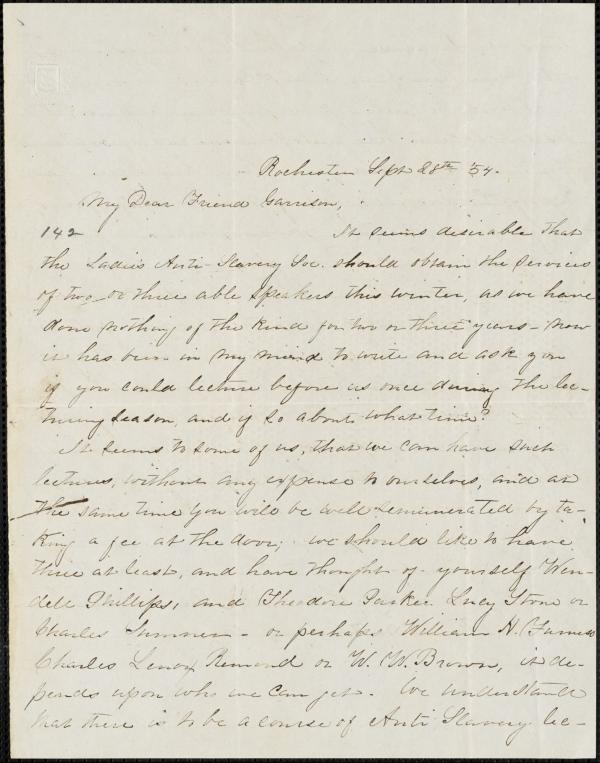 Rochester Sept 28th '54.
My Dear Friend Garrison,
142 It seems desirable that
the Ladies Anti-Slavery Soc. should obtain the services
of two or three able speakers this winter, as we have
done nothing of the kind for two or three years - now
it has been in my mind to write and ask you
if you could lecture before us once during the lec-
turing season, and if so about what time?
It seems to some of us, that we can have such
lectures, without any expense to ourselves, and at
the same time you will be well remunerated by ta-
king a fee at the door, we should like to have
three at least, and have thought of yourself Wen-
dell Phillips, and Theodore Parker Lucy Stone or
Charles Sumner - or perhaps William H. Furness
Charles Lenox Remond or W. W. Brown, it de-
pends upon who we can get. We understand
that there is to be a course of Anti Slavery lec-